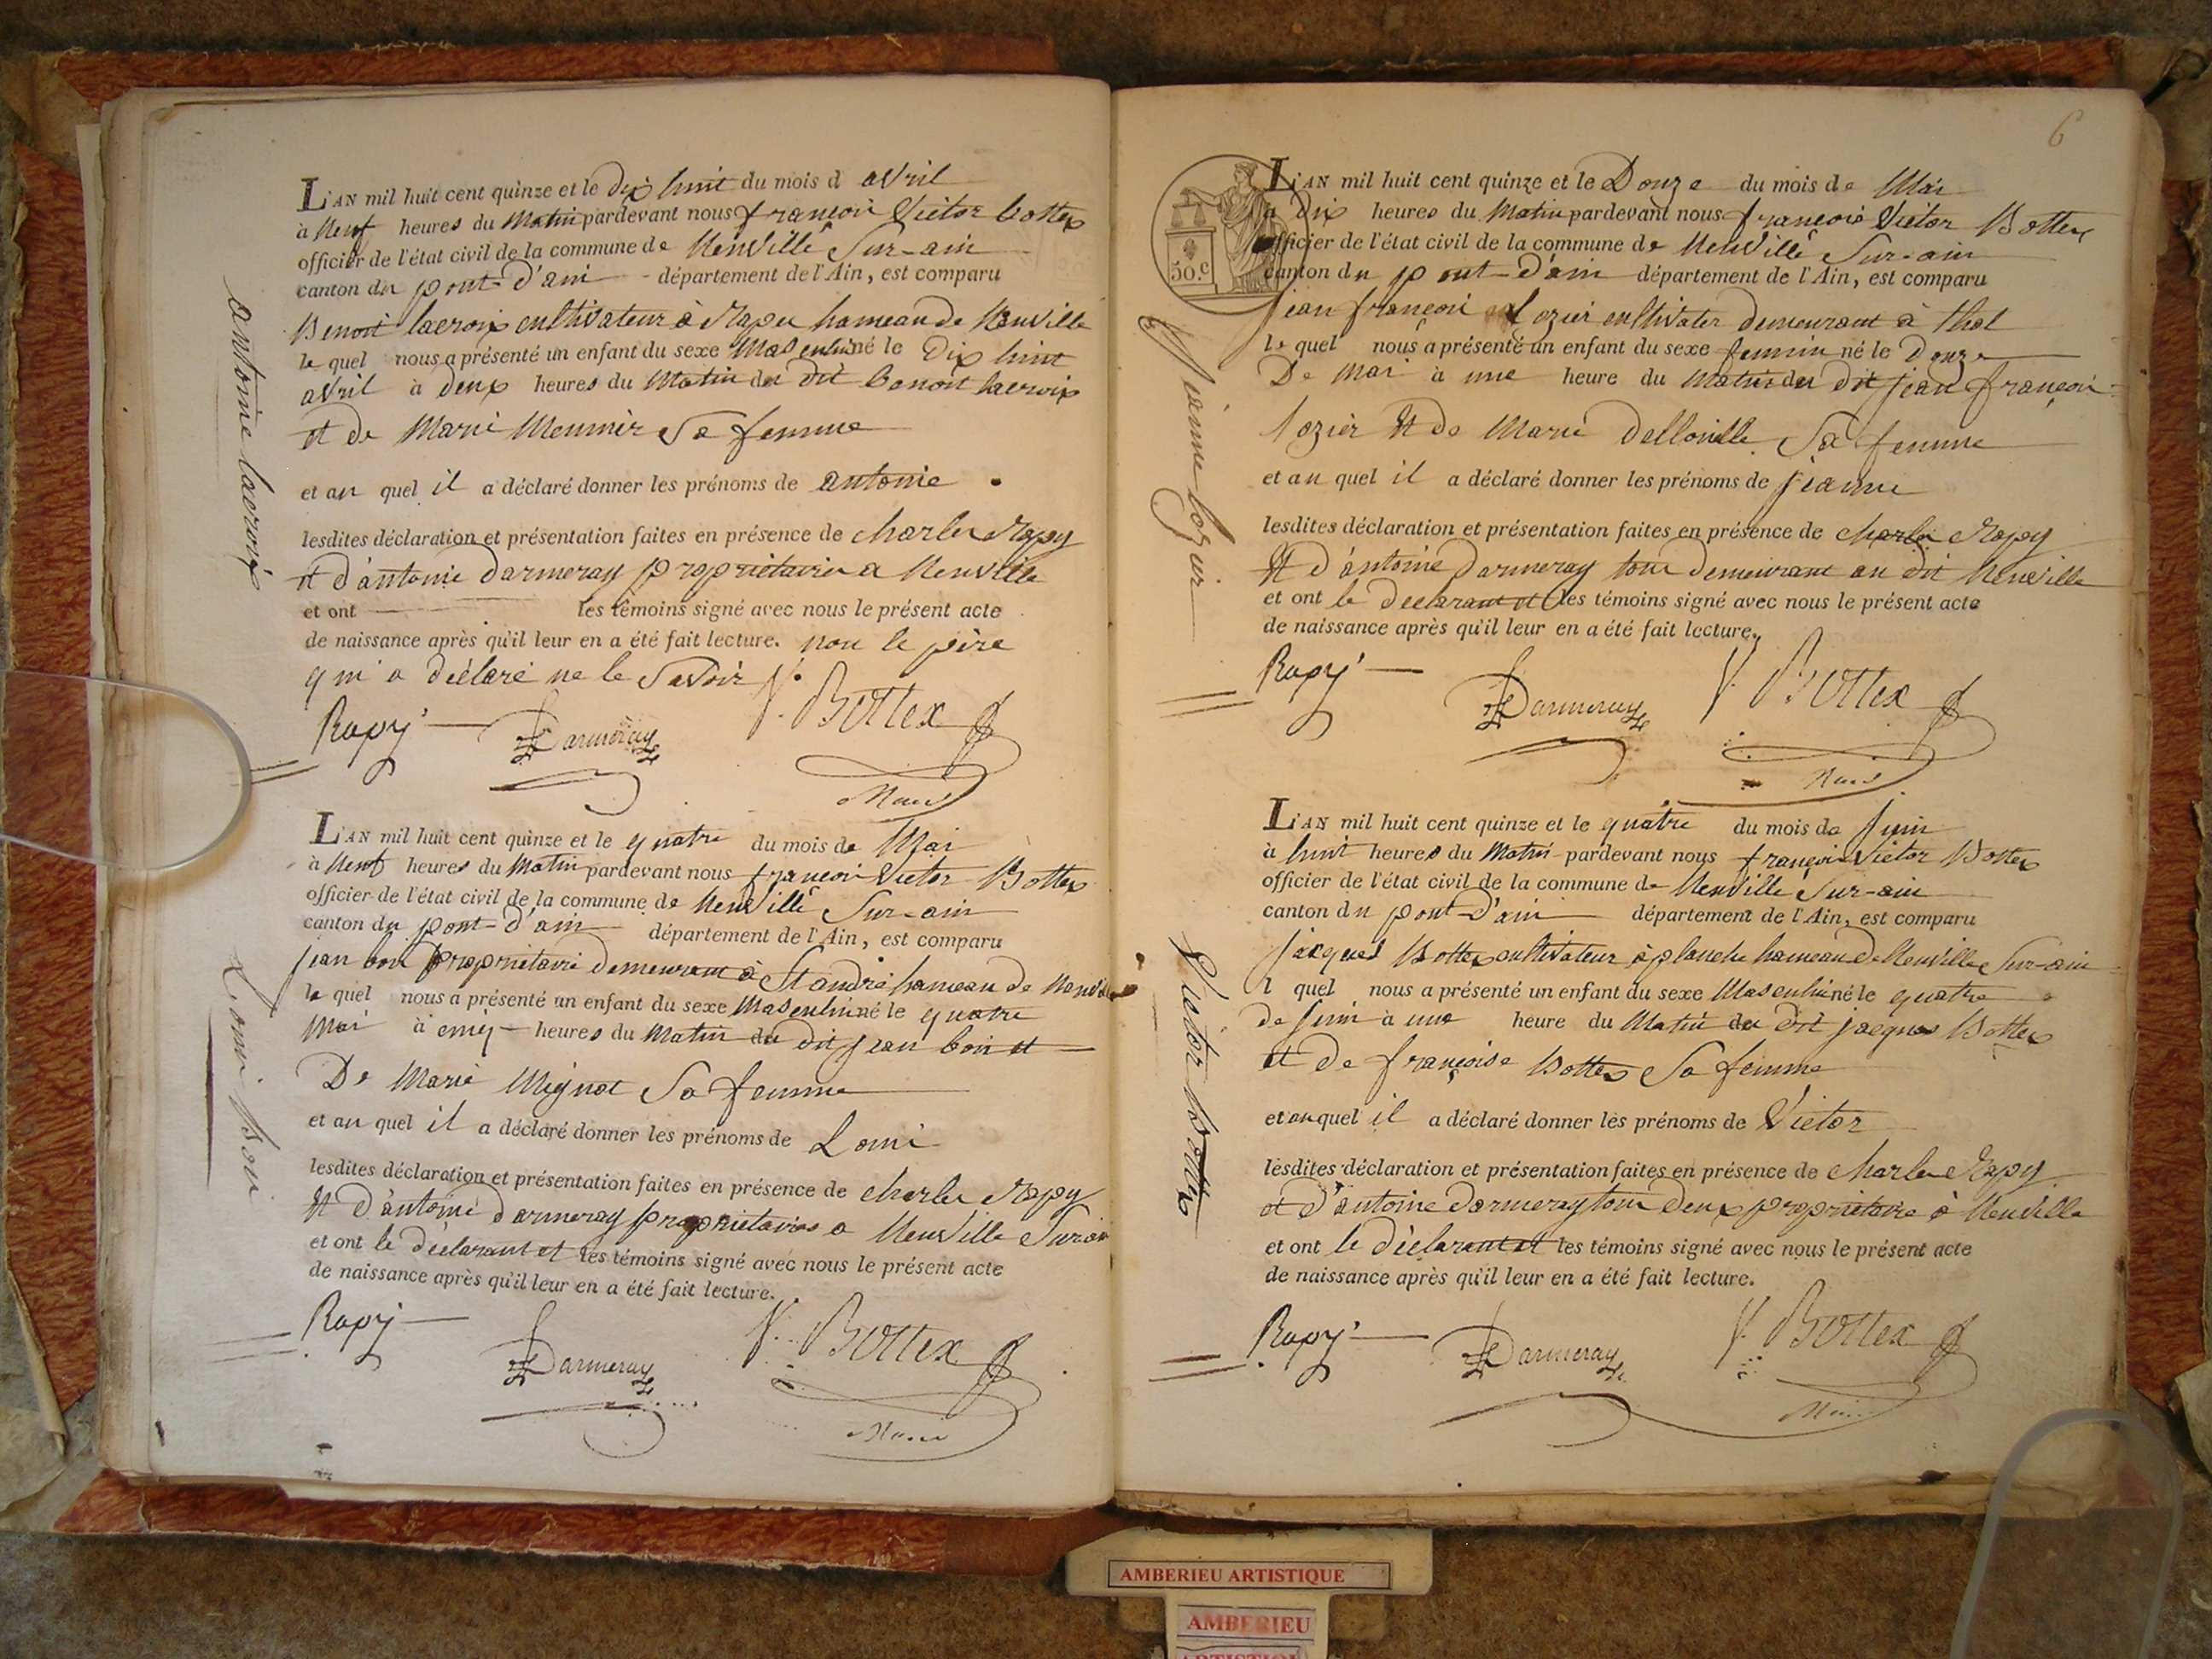 L'AN mil huit cent quinze et le dix huit du mois d avril
à Neuf heures du Matin pardevant nous françois Victor bottex
officier de l'état civil de la commune de Neuville Sur-ain
canton du pont-d'ain département de l'Ain, est comparu
Benoit lacroix cultivateur à Rapu hameau de Neuville
le quel nous a présenté un enfant du sexe Masculin né le Dix huit
avril à deux heures du Matin du dit benoit lacroix
et de Marie Meunier Sa femme
et au quel il a déclaré donner les prénoms de antoine
lesdites déclaration et présentation faites en présence de charles Rapy
et d'antoine darmeray propriétaires a Neuville
et ont les témoins signé avec nous le présent acte
de naissance après qu'il leur en a été fait lecture. non le père
qui a déclaré ne le Savoir
Rapy Darmeray V. Bottex
Maire
antoine lacroix
L'AN mil huit cent quinze et le quatre du mois de Mai
à Neuf heures du Matin pardevant nous françois Victor Bottex
officier de l'état civil de la commune de Neuville Sur-ain
canton du pont-d'ain département de l'Ain, est comparu
jean bon propriétaire demeurant à St andré hameau de Neuville
le quel nous a présenté un enfant du sexe Masculin né le quatre
Mai à cinq heures du Matin du dit jean bon et
De Marie Mignot Sa femme
et au quel il a déclaré donner les prénoms de Louis
lesdites déclaration et présentation faites en présence de charles Rapy
et d'antoine darmeray propriétaires a Neuville Sur ain
et ont le déclarant et les témoins signé avec nous le présent acte
de naissance après qu'il leur en a été fait lecture.
Rapy Darmeray V. Bottex
Maire
Louis Bon
6
50.c
L'AN mil huit cent quinze et le Douze du mois de Mai
à Dix heures du Matin pardevant nous françois Victor Bottex
officier de l'état civil de la commune de Neuville Sur-ain
canton du pont-d'ain département de l'Ain, est comparu
jean françois Lozier cultivater demeurant à thol
le quel nous a présenté un enfant du sexe feminin né le Douze
De Mai à une heure du Matin du dit jean françois
lozier et de Marie Sa femme
et au quel il a déclaré donner les prénoms de jeanne
lesdites déclaration et présentation faites en présence de charles Rapy
et d'antoine Darmeray tous demeurant au dit Neuville
et ont le déclarant et les témoins signé avec nous le présent acte
de naissance après qu'il leur en a été fait lecture.
Rapy Darmeray V. Bottex
Maire
jeanne lozier
L'AN mil huit cent quinze et le quatre du mois de juin
à huit heures du Matin pardevant nous françois Victor Bottex
officier de l'état civil de la commune de Neuville Sur-ain
canton du pont-d'ain département de l'Ain, est comparu
jacques Bottex cultivateur à planche hameau de Neuville Sur-ain
l quel nous a présenté un enfant du sexe Masculin né le quatre
de juin à une heure du Matin du dit jacques Bottex
et de françoise Bottex Sa femme
et au quel il a déclaré donner les prénoms de Victor
lesdites déclaration et présentation faites en présence de charles Rapy
et d'antoine darmeray tous deux propriétaire à Neuville
et ont le déclarant et les témoins signé avec nous le présent acte
de naissance après qu'il leur en a été fait lecture.
Rapy Darmeray V. Bottex
Maire
Victor Bottex
AMBERIEU ARTISTIQUE
AMBERIEU
ARTISTIQUE